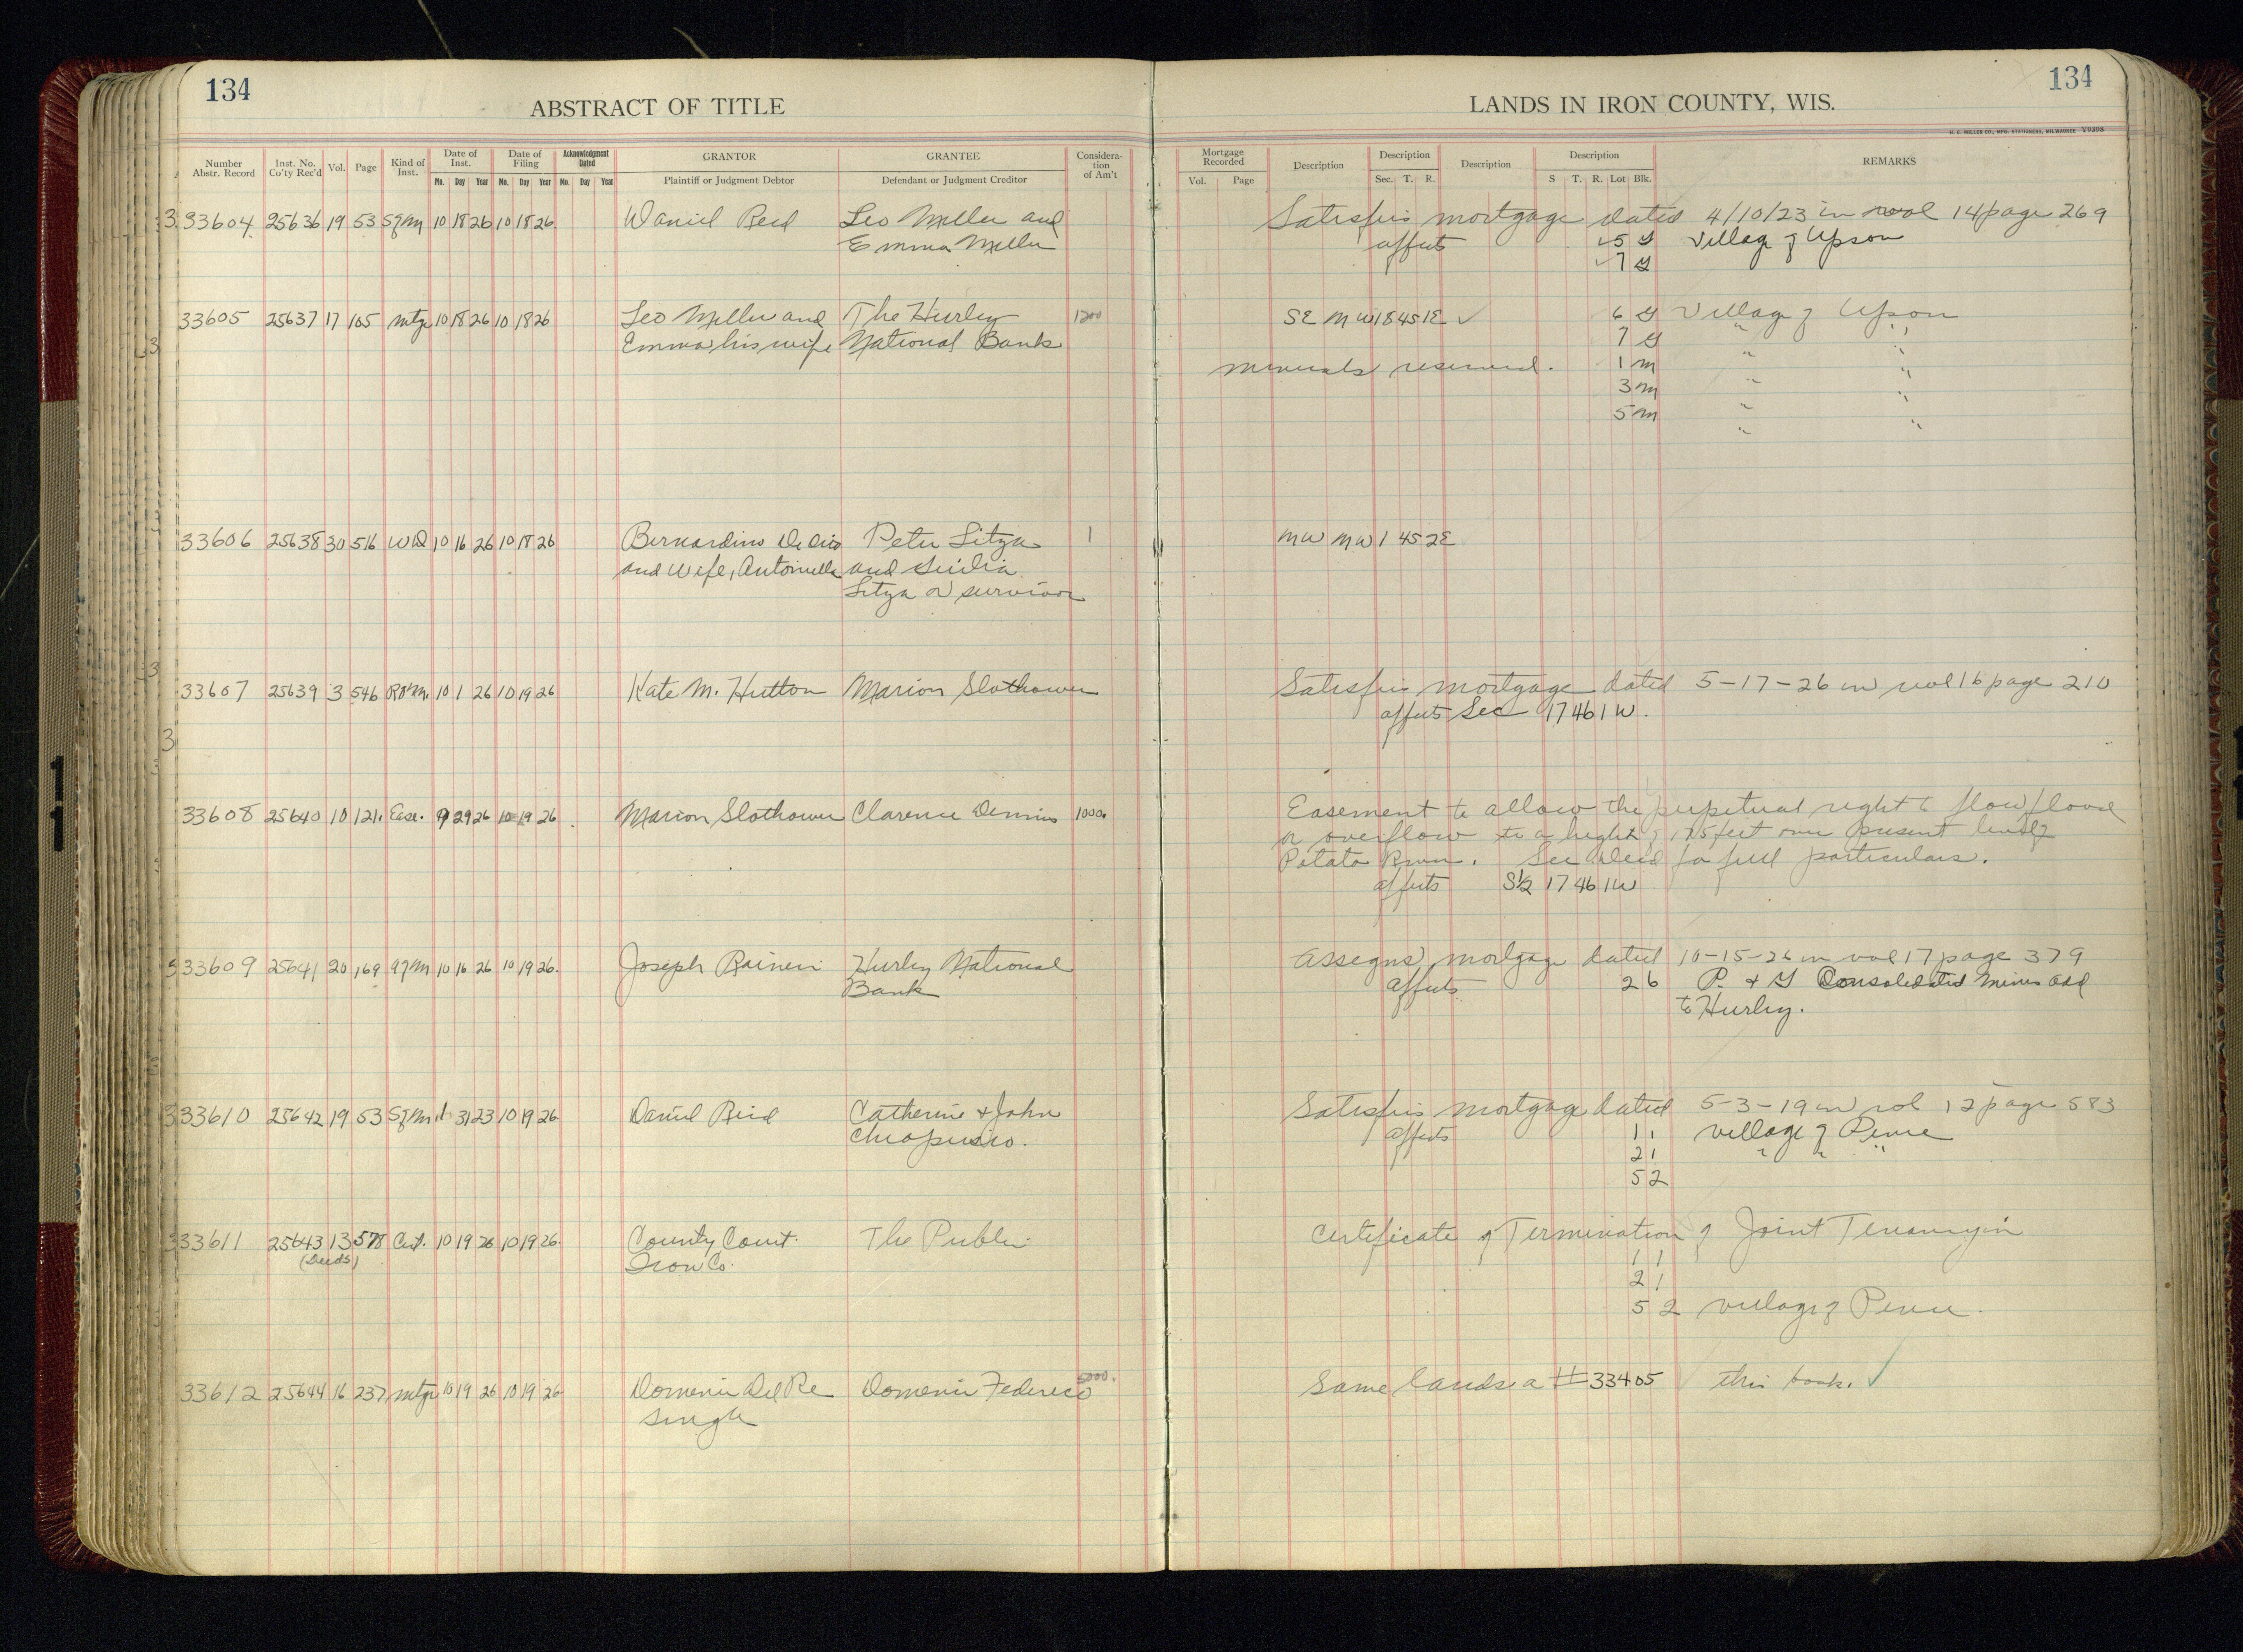 134
134
ABSTRACT OF TITLE
LANDS IN IRON COUNTY, WIS.
H. C. MILLER CO., MFG. STATIONERS, MILWAUKEE V9898
Number Abstr. Record
Inst. No. Co'ty Rec'd
Vol.
Page
Kind of Inst.
Date of Inst.
Mo. Day Year
Date of Filing
Mo. Day Year
Acknowledgment Dated
Mo. Day Year
GRANTOR
Plaintiff or Judgment Debtor
GRANTEE
Defendant or Judgment Creditor
Consideration of Am't
Mortgage Recorded
Vol. Page
Description
Description
Sec. T. R.
Description
Description
S T. R. Lot Blk.
REMARKS
33604 25636 19 53 Sfm 10 18 26 10 18 26 Daniel Reid Leo Miller and Satisfies mortgage dated 4/10/23 in vol 14 page 269
Emma Miller affects 5 G Village of Upson
7 G
33605 25637 17 105 Mtge 10 18 26 10 18 26 Leo Miller and The Hurley 1200 SE NW 18 45 1E ✓ 6 G Village of Upson
Emma his wife National Bank 7 G " "
Minerals reserved. 1 M " "
3 M " "
5 M " "
" "
33606 25638 30 516 WD 10 16 26 10 18 26 Bernardino Peter Sitza 1 NW NW 1 45 2E
and wife, Antoinella and
Sitza or survivor
33607 25639 3 546 10 1 26 10 19 26 Kate M. Hutton Marion Slothower Satisfies mortgage dated 5-17-26 in vol 16 page 210
affects Sec 17 46 1W.
33608 25640 10 121. Ease. 9 29 26 10 19 26 Marion Slothower Clarence Dennis 1000. Easement to allow the perpetual right to flow flood
or overflow to a height of feet over present level of
Potato River. See deed for full particulars.
affects S½ 17 46 1W
33609 25641 20 169 10 16 26 10 19 26. Joseph Raineri Hurley National Assigns mortgage dated 10-15-26 in vol 17 page 379
Bank affects 2 6 P. & G Consolidated Mines Add
to Hurley.
33610 25642 19 53 Sfm 31 23 10 19 26 Daniel Reid Catherine & John Satisfies mortgage dated 5-3-19 in vol 12 page 583
Chiapusio. affects 1 1 Village of Pence
2 1 " " "
5 2
33611 25643 13 578 Cert. 10 19 26 10 19 26. County Court The Public Certificate of Termination of Joint Tenancy in
(Deeds) Iron Co. 1 1
2 1
5 2 Village of Pence.
33612 25644 16 237 Mtge 10 19 26 10 19 26 Domenic Del Re Domenic Federico 5000. Same lands a #33405 this book. ✓
single